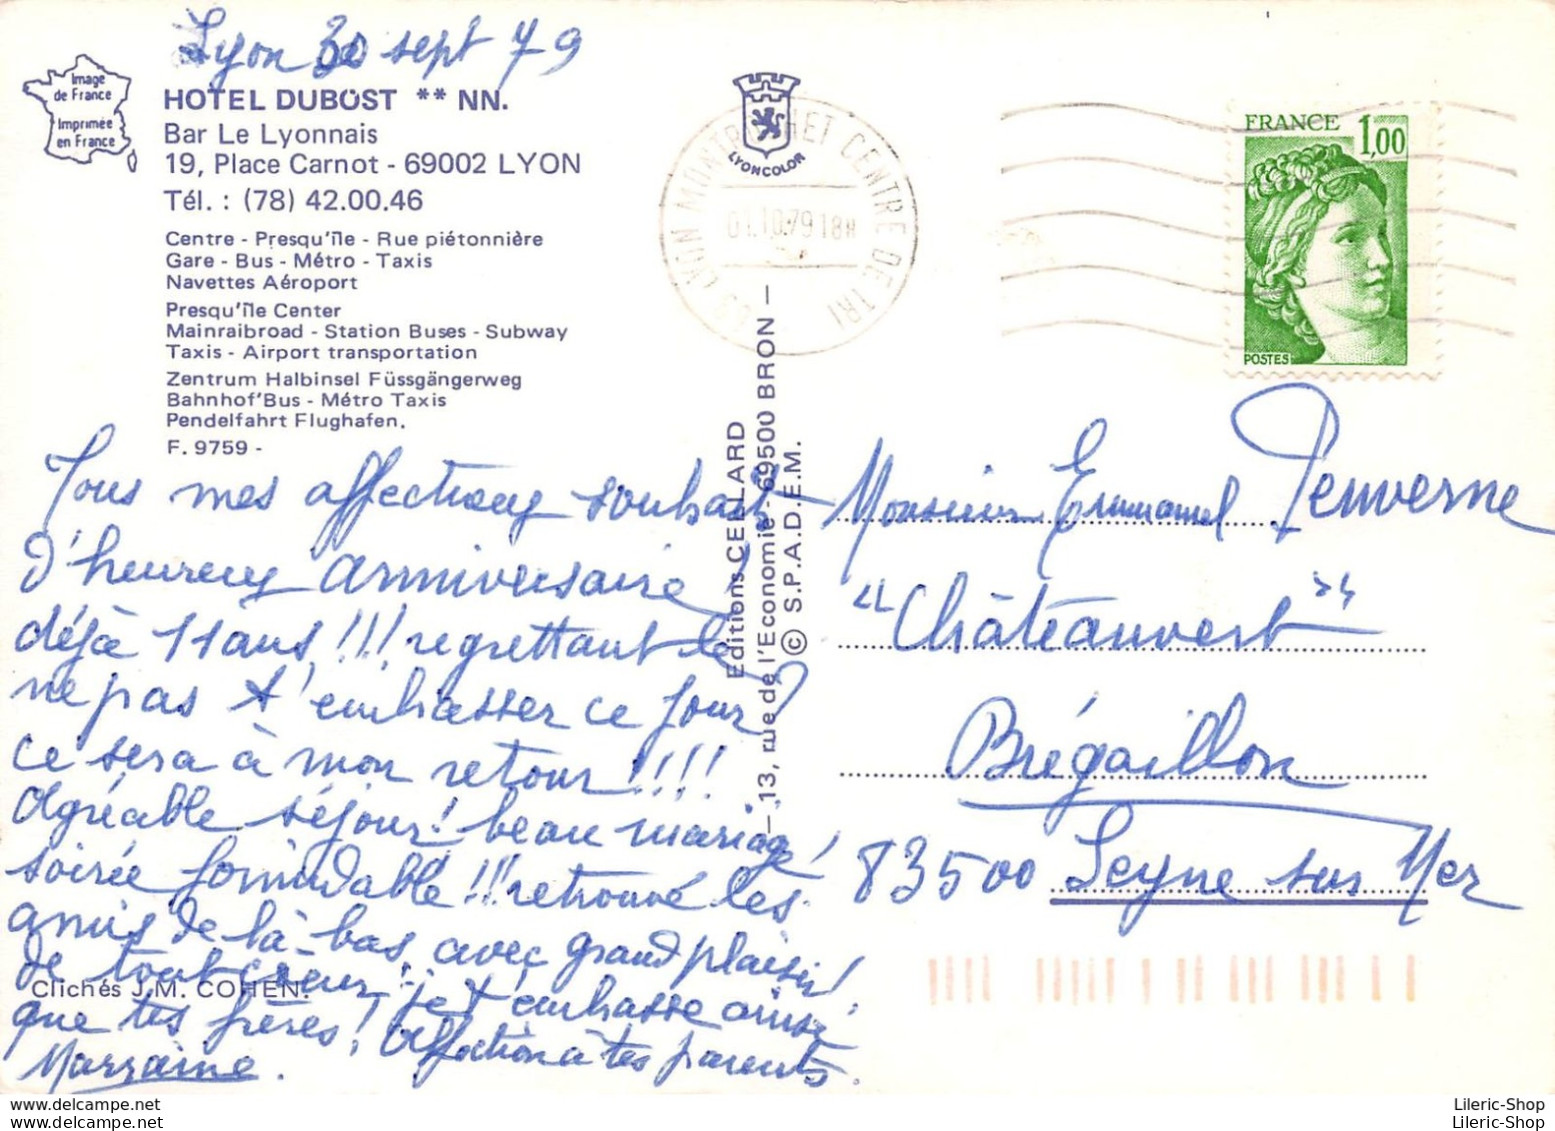 Lyon 30 sept 79
Image
de France
Imprimée
en France
HOTEL DUBOST ** NN.
Bar Le Lyonnais
19, Place Carnot - 69002 LYON
Tél. : (78) 42.00.46
Centre - Presqu'île - Rue piétonnière
Gare - Bus - Métro - Taxis
Navettes Aéroport
Presqu'île Center
Mainraibroad - Station Buses - Subway
Taxis - Airport transportation
Zentrum Halbinsel Füssgängerweg
Bahnhof'Bus - Métro Taxis
Pendelfahrt Flughafen.
F. 9759 -
Tous mes affectueux souhaits
d'heureux anniversaire!
déjà 11 ans!!! regrettant de
ne pas t'embrasser ce jour
ce sera à mon retour!!!!
Agréable séjour! beau mariage!
soirée formidable!!! retrouvé les
amis de là-bas avec grand plaisir!
de tout cœur je t'embrasse ainsi
que tes frères! Affection à tes parents.
Marraine.
Clichés J.M. COHEN.
LYONCOLOR
69 LYON MONTROCHET CENTRE DE TRI
01.10.79 18H
Editions CELLARD
13, rue de l'Economie - 69500 BRON -
© S.P.A.D.E.M.
FRANCE 1,00
POSTES
Monsieur Emmanuel Penverne
"Châteauvert"
Brégaillon
83500 Seyne sur Mer
Lileric-Shop
Lileric-Shop
Lileric-Shop
Lileric-Shop